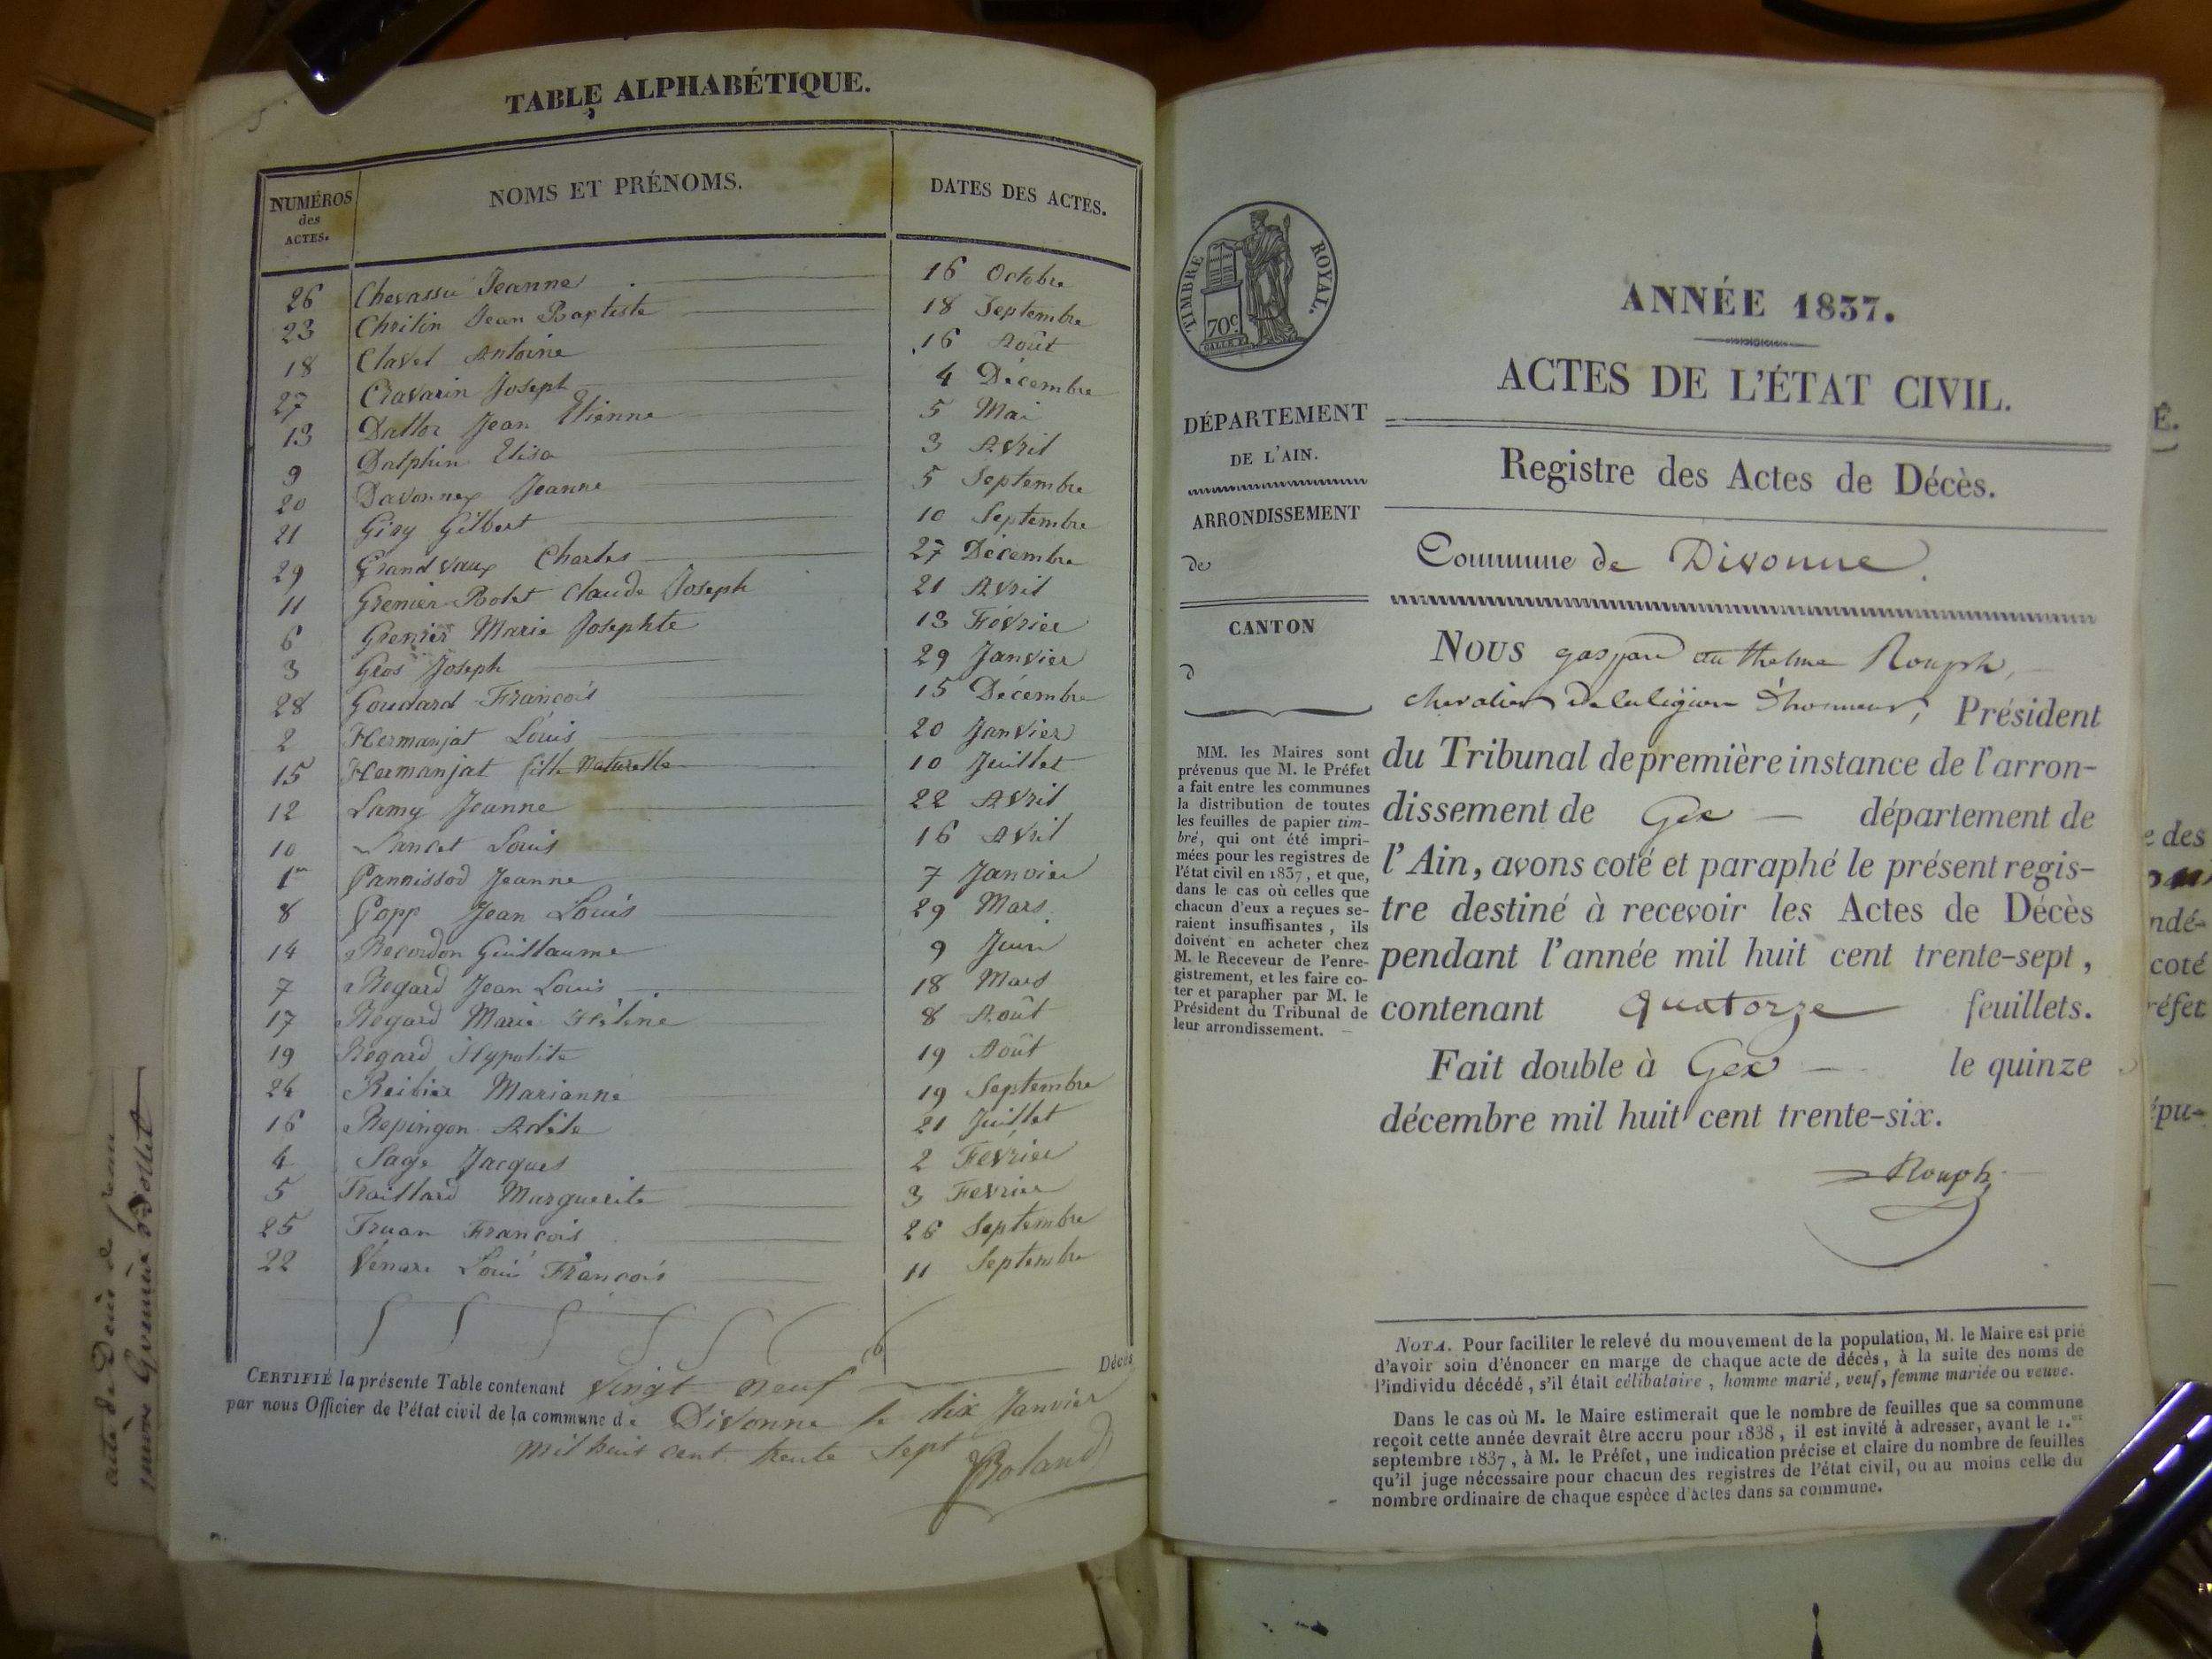 TABLE ALPHABÉTIQUE.
NUMÉROS des ACTES. NOMS ET PRÉNOMS. DATES DES ACTES.
26 Chevassu Jeanne 16 Octobre
23 Chritin Jean Baptiste 18 Septembre
18 Clavel Antoine 16 Août
27 Cravarin Joseph 4 Décembre
13 Dallor Jean Etienne 5 Mai
9 Dalphin Elisa 3 Avril
20 Davonnex Jeanne 5 Septembre
21 Giry Gilbert 10 Septembre
29 Grandvaux Charles 27 Décembre
11 Grenier-Bolet Claude Joseph 21 Avril
6 Grenier Marie Josephte 13 Février
3 Gros Joseph 29 Janvier
28 Goudard François 15 Décembre
2 Hermanjat Louis 20 Janvier
15 Hermanjat fille Naturelle 10 Juillet
12 Lamy Jeanne 22 Avril
10 Lancet Louis 16 Avril
1er Pannissod Jeanne 7 Janvier
8 Popp Jean Louis 29 Mars
14 Recordon Guillaume 9 Juin
7 Regard Jean Louis 18 Mars
17 Regard Marie Hélène 8 Août
19 Regard Hypolite 19 Août
24 Reibier Marianne 19 Septembre
16 Repingon Adèle 21 Juillet
4 Sage Jacques 2 Février
5 Traillard Marguerite 3 Fevrier
25 Truan François 26 Septembre
22 Venari Louis François 11 Septembre
CERTIFIÉ la présente Table contenant vingt neuf Décès
par nous Officier de l'état civil de la commune de Divonne le dix Janvier
mil huit cent trente sept Roland
acte de Décès de
TIMBRE ROYAL.
70c.
ANNÉE 1837.
ACTES DE L'ÉTAT CIVIL.
DÉPARTEMENT
DE L'AIN.
ARRONDISSEMENT
de
CANTON
d
MM. les Maires sont
prévenus que M. le Préfet
a fait entre les communes
la distribution de toutes
les feuilles de papier tim-
bré, qui ont été impri-
mées pour les registres de
l'état civil en 1837, et que,
dans le cas où celles que
chacun d'eux a reçues se-
raient insuffisantes, ils
doivent en acheter chez
M. le Receveur de l'enre-
gistrement, et les faire co-
ter et parapher par M. le
Président du Tribunal de
leur arrondissement.
Registre des Actes de Décès.
Commune de Divonne.
NOUS gaspard anthelme Rouph,
chevalier De la légion d'honneur, Président
du Tribunal de première instance de l'arron-
dissement de Gex département de
l'Ain, avons coté et paraphé le présent regis-
tre destiné à recevoir les Actes de Décès
pendant l'année mil huit cent trente-sept,
contenant quatorze feuillets.
Fait double à Gex le quinze
décembre mil huit cent trente-six.
Rouph
NOTA. Pour faciliter le relevé du mouvement de la population, M. le Maire est prié
d'avoir soin d'énoncer en marge de chaque acte de décès, à la suite des noms de
l'individu décédé, s'il était célibataire, homme marié, veuf, femme mariée ou veuve.
Dans le cas où M. le Maire estimerait que le nombre de feuilles que sa commune
reçoit cette année devrait être accru pour 1838, il est invité à adresser, avant le 1.er
septembre 1837, à M. le Préfet, une indication précise et claire du nombre de feuilles
qu'il juge nécessaire pour chacun des registres de l'état civil, ou au moins celle du
nombre ordinaire de chaque espèce d'actes dans sa commune.
É.
e des
ndé-
coté
réfet
épu-